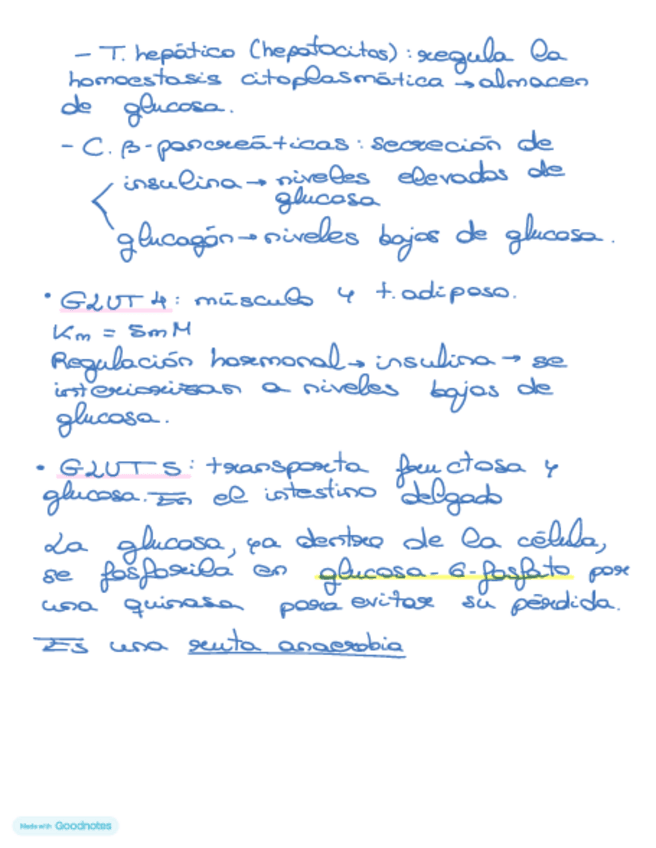 - T. hepático (hepatocitos): regula la
homoestasis citoplasmática → almacen
de glucosa.
- C. β-pancreáticas: secreción de
insulina → niveles elevados de
glucosa
glucagón → niveles bajos de glucosa.
• GLUT 4: músculo y t. adiposo.
Km = 5mM
Regulación hormonal → insulina → se
interiorizan a niveles bajos de
glucosa.
• GLUT 5: transporta fructosa y
glucosa. En el intestino delgado
La glucosa, ya dentro de la célula,
se fosforila en glucosa-6-fosfato por
una quinasa para evitar su pérdida.
Es una ruta anaerobia
Made with Goodnotes